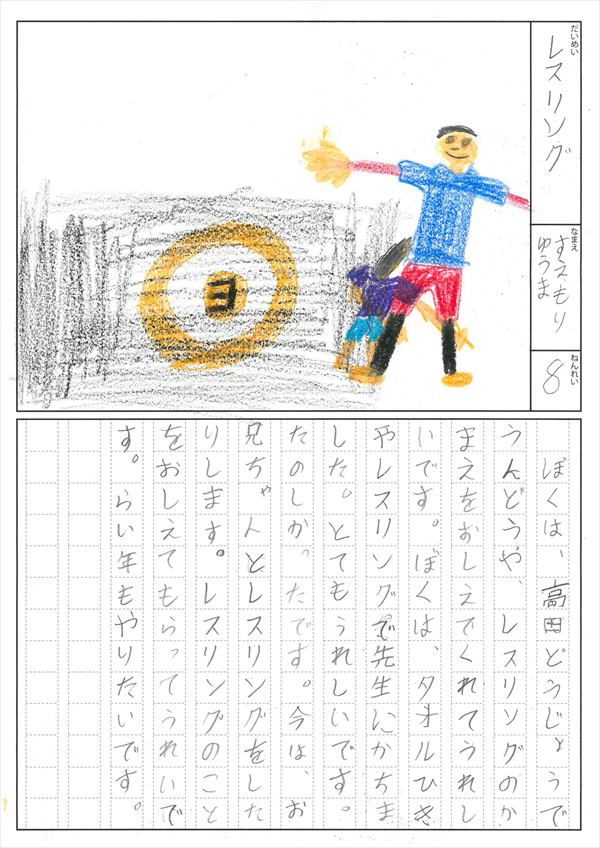 だいめい
レスリング
なまえ
すえもり
ゆうま
ねんれい
8
ヨ
ぼくは、高田どうじょうで
うんどうや、レスリングのか
まえをおしえてくれてうれし
いです。ぼくは、タオルひき
やレスリングで先生にかちま
した。とてもうれしいです。
たのしかったです。今は、お
兄ちゃんとレスリングをした
りします。レスリングのこと
をおしえてもらってうれいで
す。らい年もやりたいです。